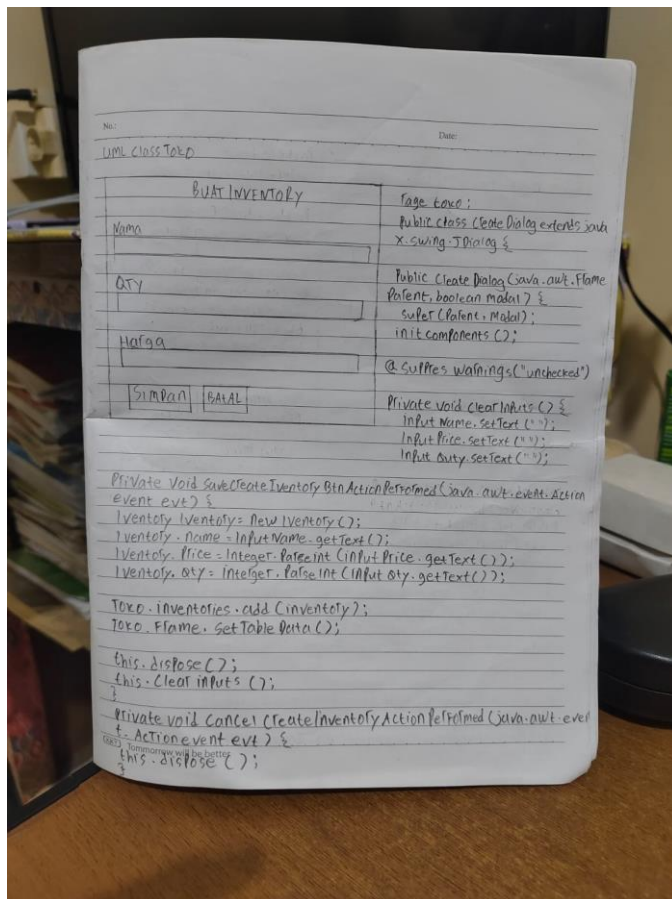 No.:
Date:
UML Class Toko
BUAT INVENTORY
Nama
QTY
Harga
SIMPAN
BATAL
Page toko :
Public class Create Dialog extends java
x.swing.JDialog {
Public Create Dialog (java.awt.Flame
Parent, boolean modal) {
super (Parent, Modal);
init components ();
@ Suppres warnings ("unchecked")
Private void ClearInputs () {
Input Name.setText (" ");
Input Price.setText (" ");
Input Quty.setText (" ");
Private void SaveCreate Iventory Btn Action Performed (java.awt.event.Action
event evt) {
Iventory Iventory = New Iventory ();
Iventory . name = InputName.getText();
Iventory. Price = Integer. ParseInt (input Price. getText ());
Iventory. Qty = interger. ParseInt (InPut Qty. getText ());
Toko . inventories . add (inventory);
Toko . Flame . setTable Data ();
this. dispose ();
this. Clear inputs ();
}
Private void Cancel Create Inventory Action Performed (java.awt.eve
t. Action event evt) {
Tommorrow will be better
this . dispose ();
}